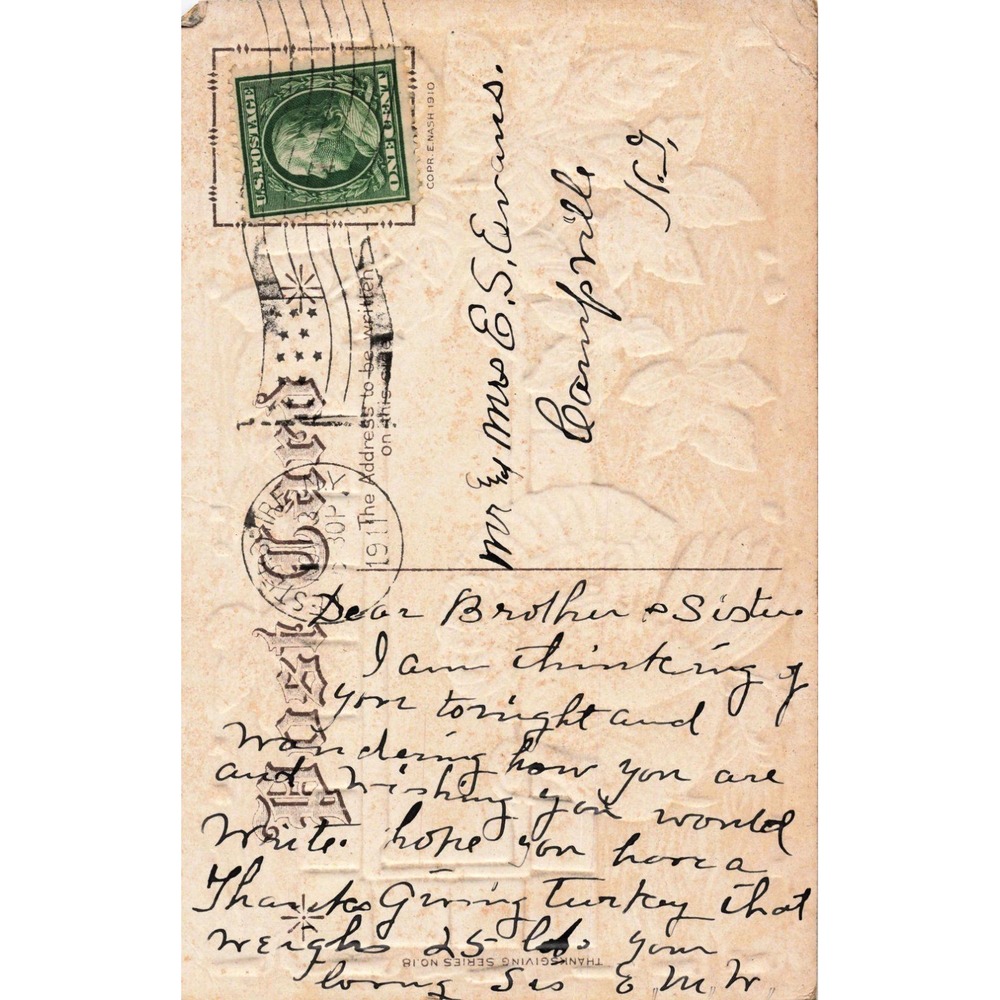 U.S. POSTAGE
ONE CENT
COPR. E. NASH 1910
Post Card
The Address to be written
on this
30 P
1911
Mr & Mrs E. S. Evans.
Campville
N.Y,
Dear Brother & Sister
I am thinking of
you tonight and
wondering how you are
and wishing you would
write. hope you have a
Thanks Giving turkey that
weighs 25 lbs your
loving Sis E. M. W.
THANKSGIVING SERIES NO. 18